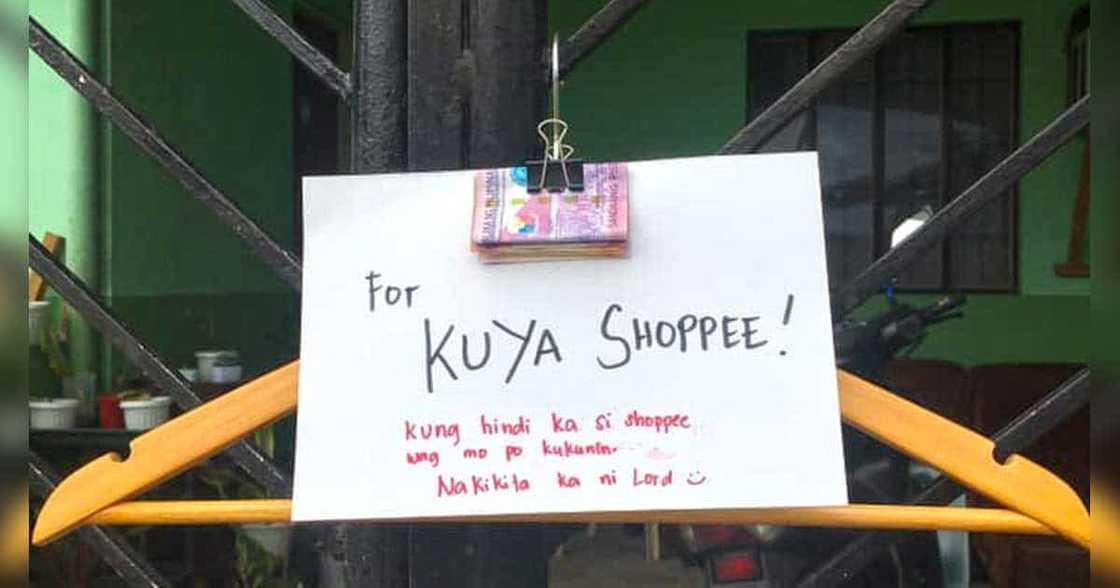 For
KUYA SHOPPEE!
kung hindi ka si shoppee
wag mo po kukunin.
Nakikita ka ni Lord